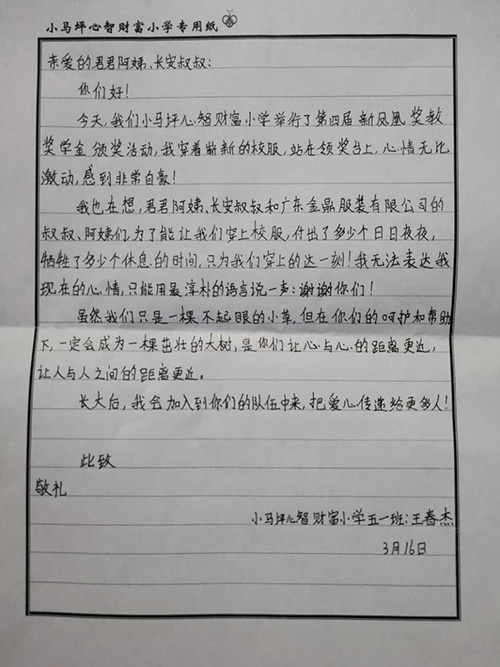 小马坪心智财富小学专用纸
亲爱的君君阿姨、长安叔叔：
你们好！
今天，我们小马坪心智财富小学举行了第四届新凤凰奖教
奖学金颁奖活动，我穿着崭新的校服，站在领奖台上，心情无比
激动，感到非常自豪！
我也在想，君君阿姨、长安叔叔和广东金鼎服装有限公司的
叔叔、阿姨们，为了能让我们穿上校服，付出了多少个日日夜夜，
牺牲了多少个休息的时间，只为我们穿上的这一刻！我无法表达我
现在的心情，只能用最淳朴的语言说一声：谢谢你们！
虽然我们只是一棵不起眼的小草，但在你们的呵护和帮助
下，一定会成为一棵茁壮的大树，是你们让心与心的距离更近，
让人与人之间的距离更近。
长大后，我会加入到你们的队伍中来，把爱心传递给更多人！
此致
敬礼
小马坪心智财富小学五一班：王春杰
3月16日